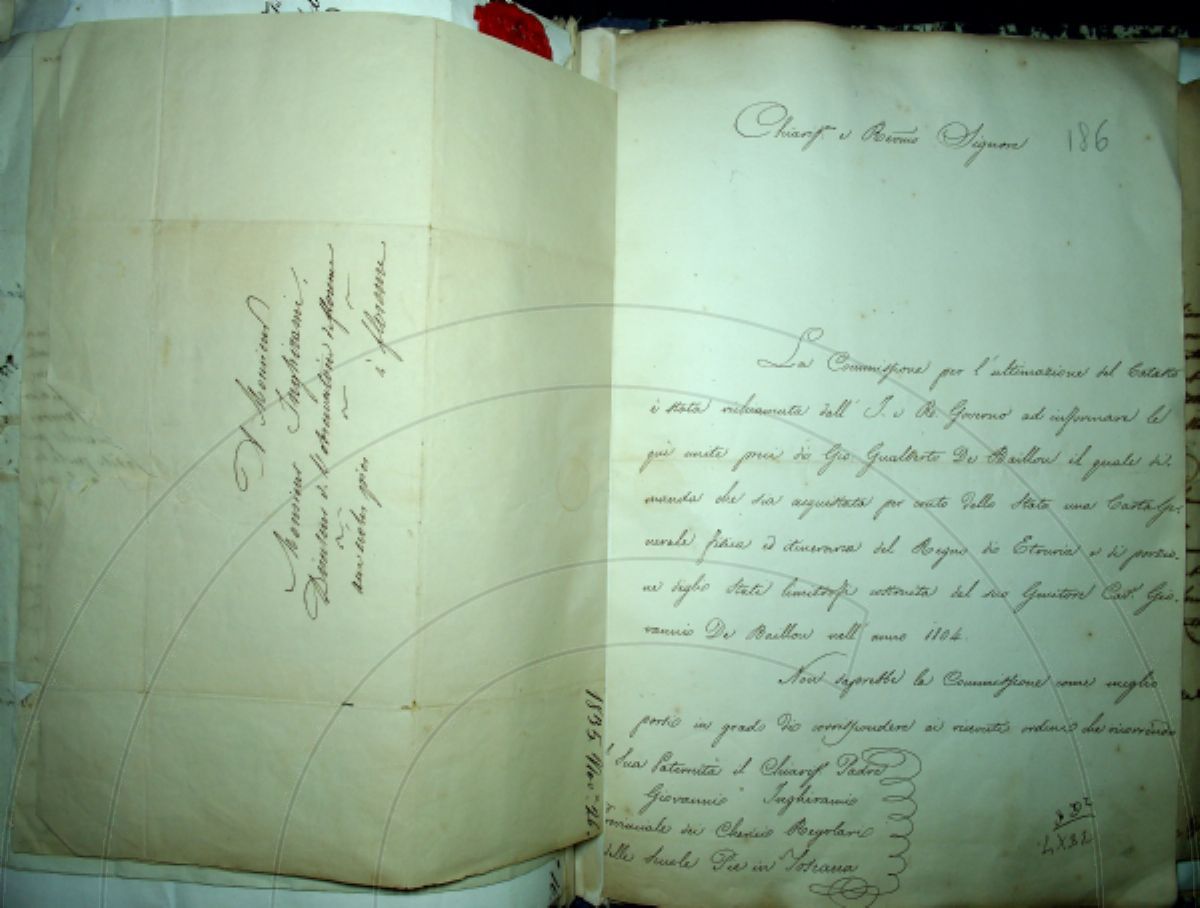 A Monsieur
Monsieur Inghirami.
Directeur de l'observatoire de florence
aux écoles pies
à florence
1835 9bre 26.
186
Chiariss. e Rev.mo Signore
La Commissione per l'ultimazione del Catasto
è stata richiamata dall' I. e R. Governo ad informare le
qui unite preci di Gio. Gualberto De Baillou il quale di-
manda che sia acquistata per conto dello Stato una Carta Ge-
nerale fisica ed itineraria del Regno di Etruria e di porzio-
ne degli Stati limitrofi costruita dal suo Genitore Cav. Gio-
vanni De Baillou nell' anno 1804.
Non saprebbe la Commissione come meglio
porsi in grado di corrispondere ai ricevuti ordini che ricorrendo
Sua Paternità il Chiariss. Padre
Giovanni Inghirami
Provinciale dei Cherici Regolari
delle Scuole Pie in Toscana